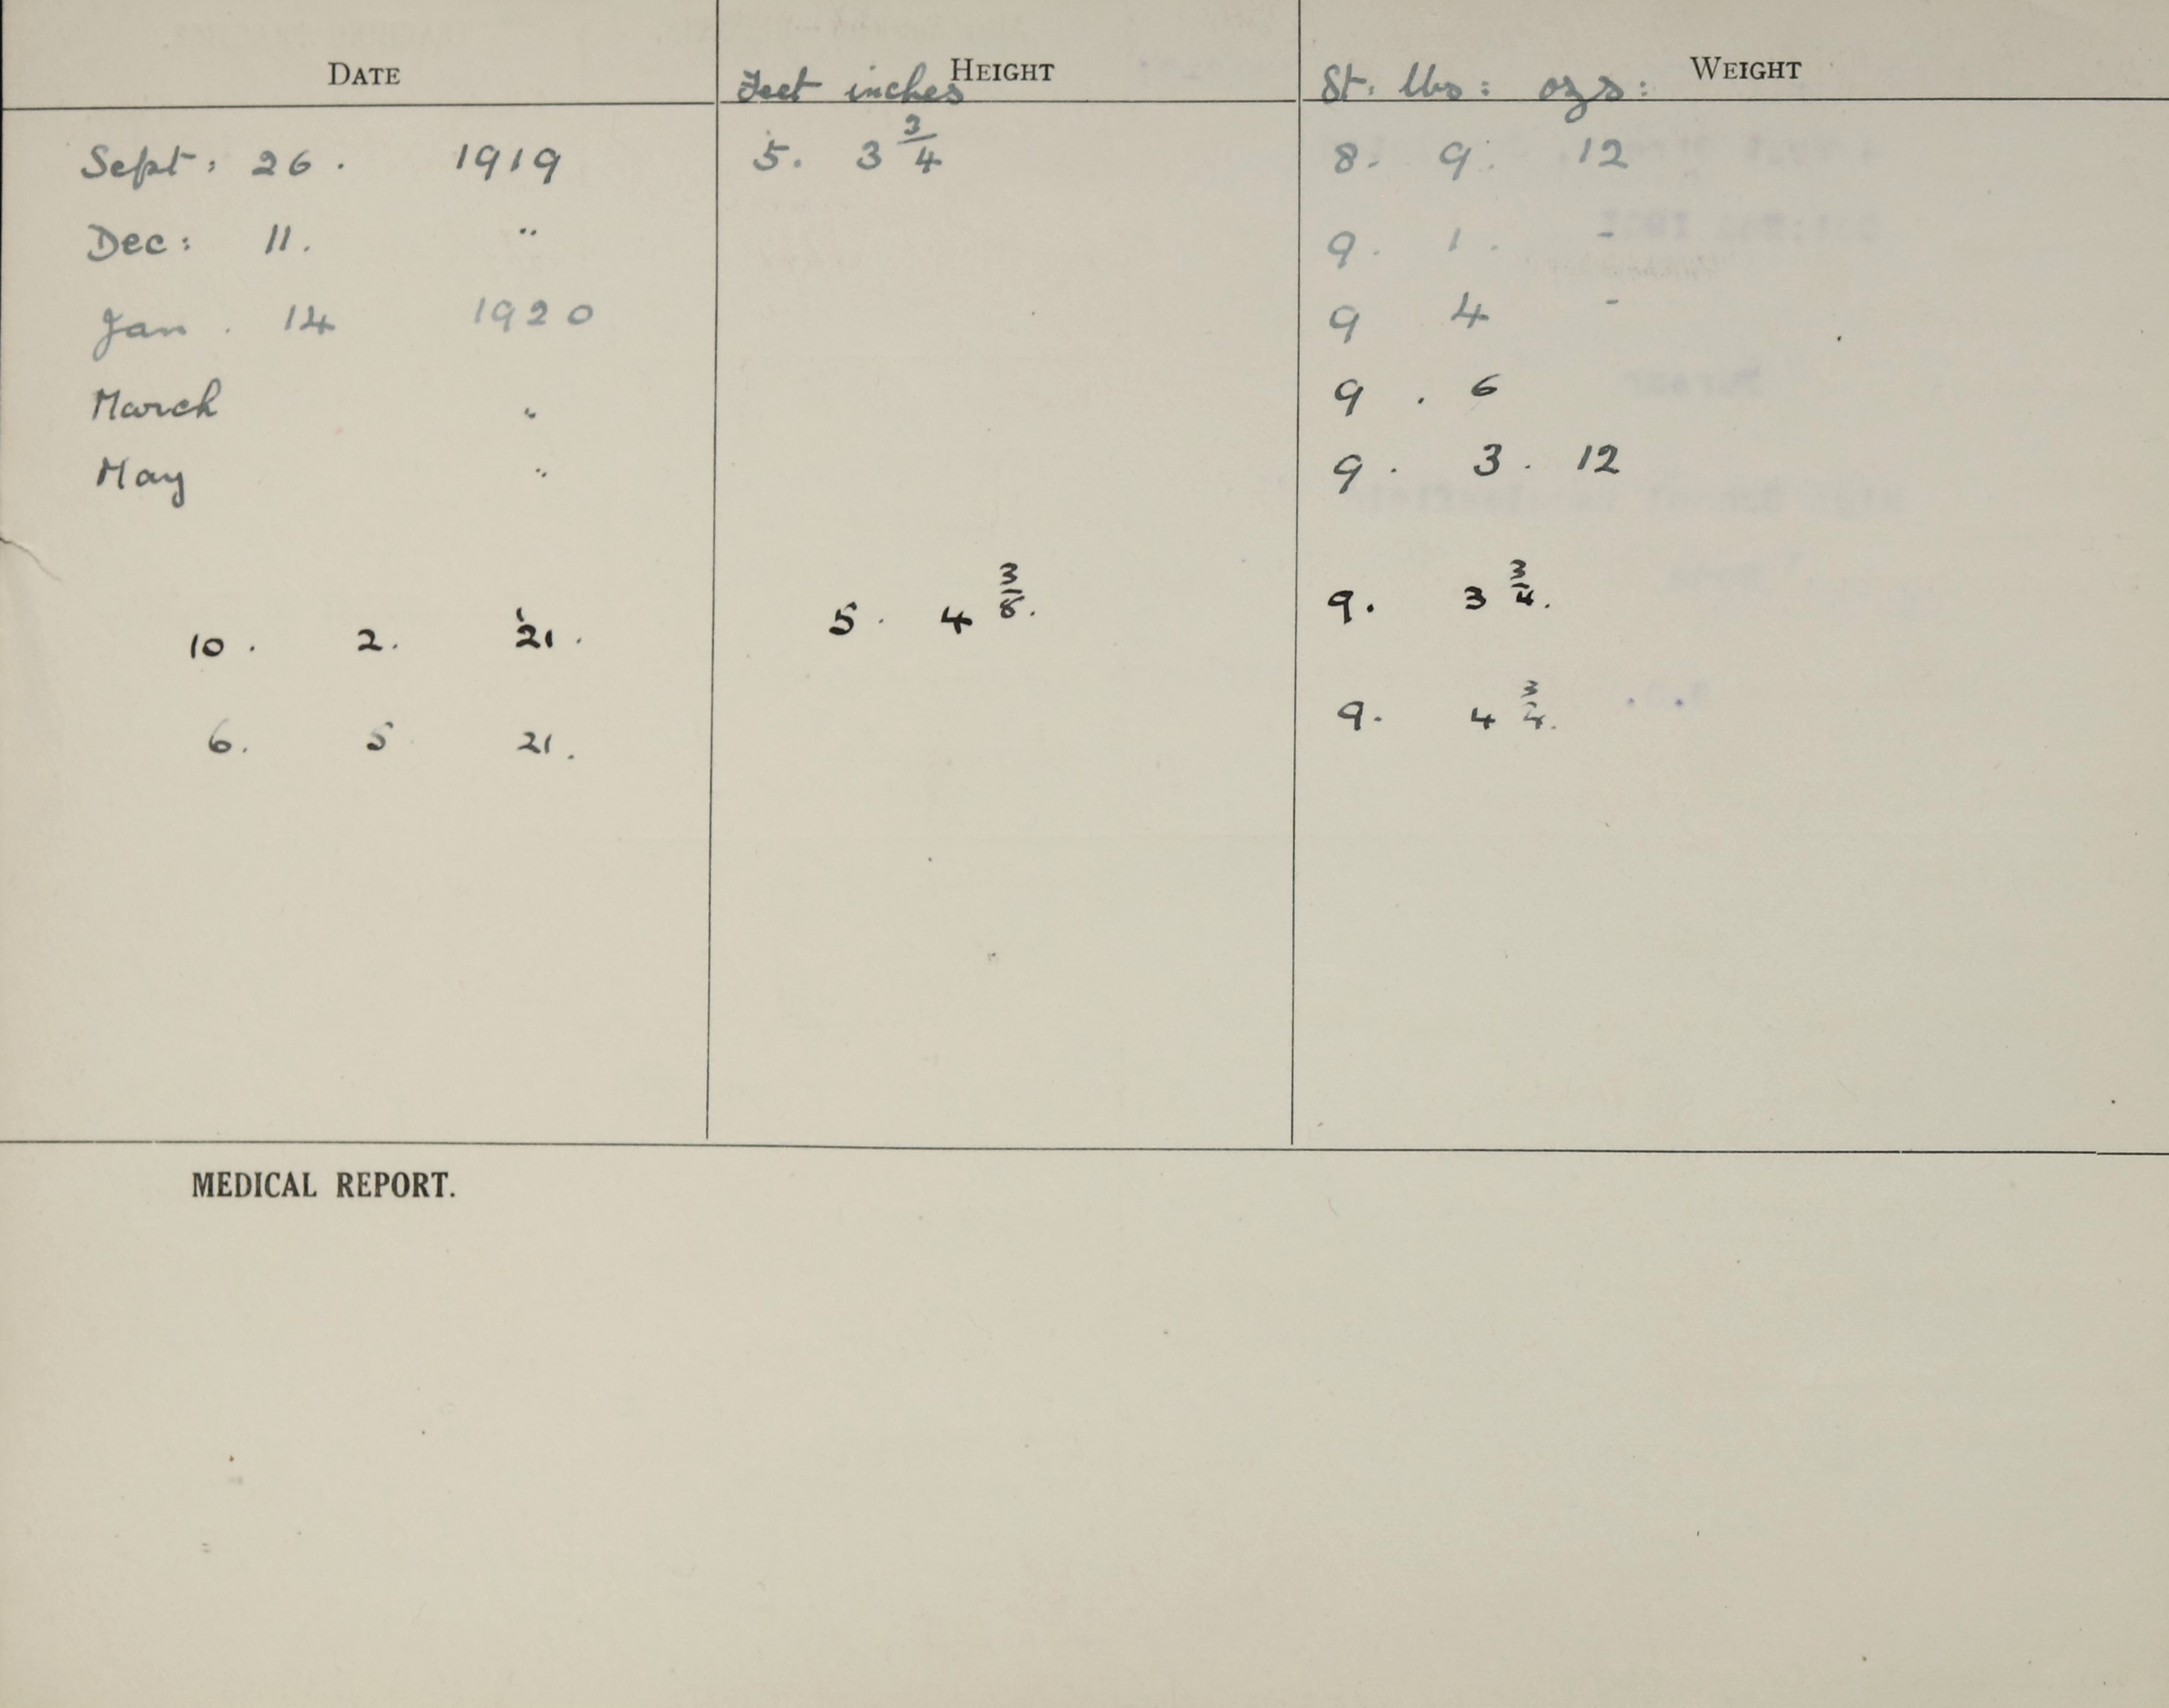 DATE Feet inches HEIGHT St: lbs: ozs: WEIGHT
Sept: 26. 1919 5. 3 3/4 8. 9. 12
Dec: 11. " 9. 1. -
Jan. 14 1920 9 4 -
March " 9. 6
May " 9. 3. 12
10. 2. '21. 5. 4 3/8. 9. 3 3/4.
6. 5 21. 9. 4 3/4.
MEDICAL REPORT.